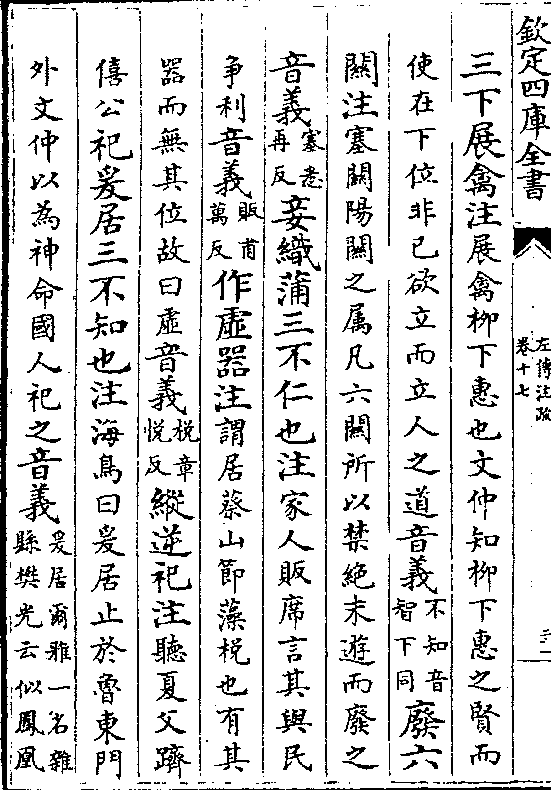 欽定四庫全書
左傳注疏
卷十七
三下展禽注展禽柳下惠也文仲知柳下惠之賢而
使在下位非已欲立而立人之道音義不知音智下同廢六
關注塞關陽關之属凡六關所以禁絶末遊而廢之
音義塞悉再反妾織蒲三不仁也注家人販席言其與民
争利音義販甫萬反作虛器注謂居蔡山節藻梲也有其
器而無其位故曰虛音義梲章悅反縱逆祀注聽夏父躋
僖公祀爰居三不知也注海鳥曰爰居止於魯東門
外文仲以為神命國人祀之音義爰居爾雅一名雜縣樊光云似鳳凰